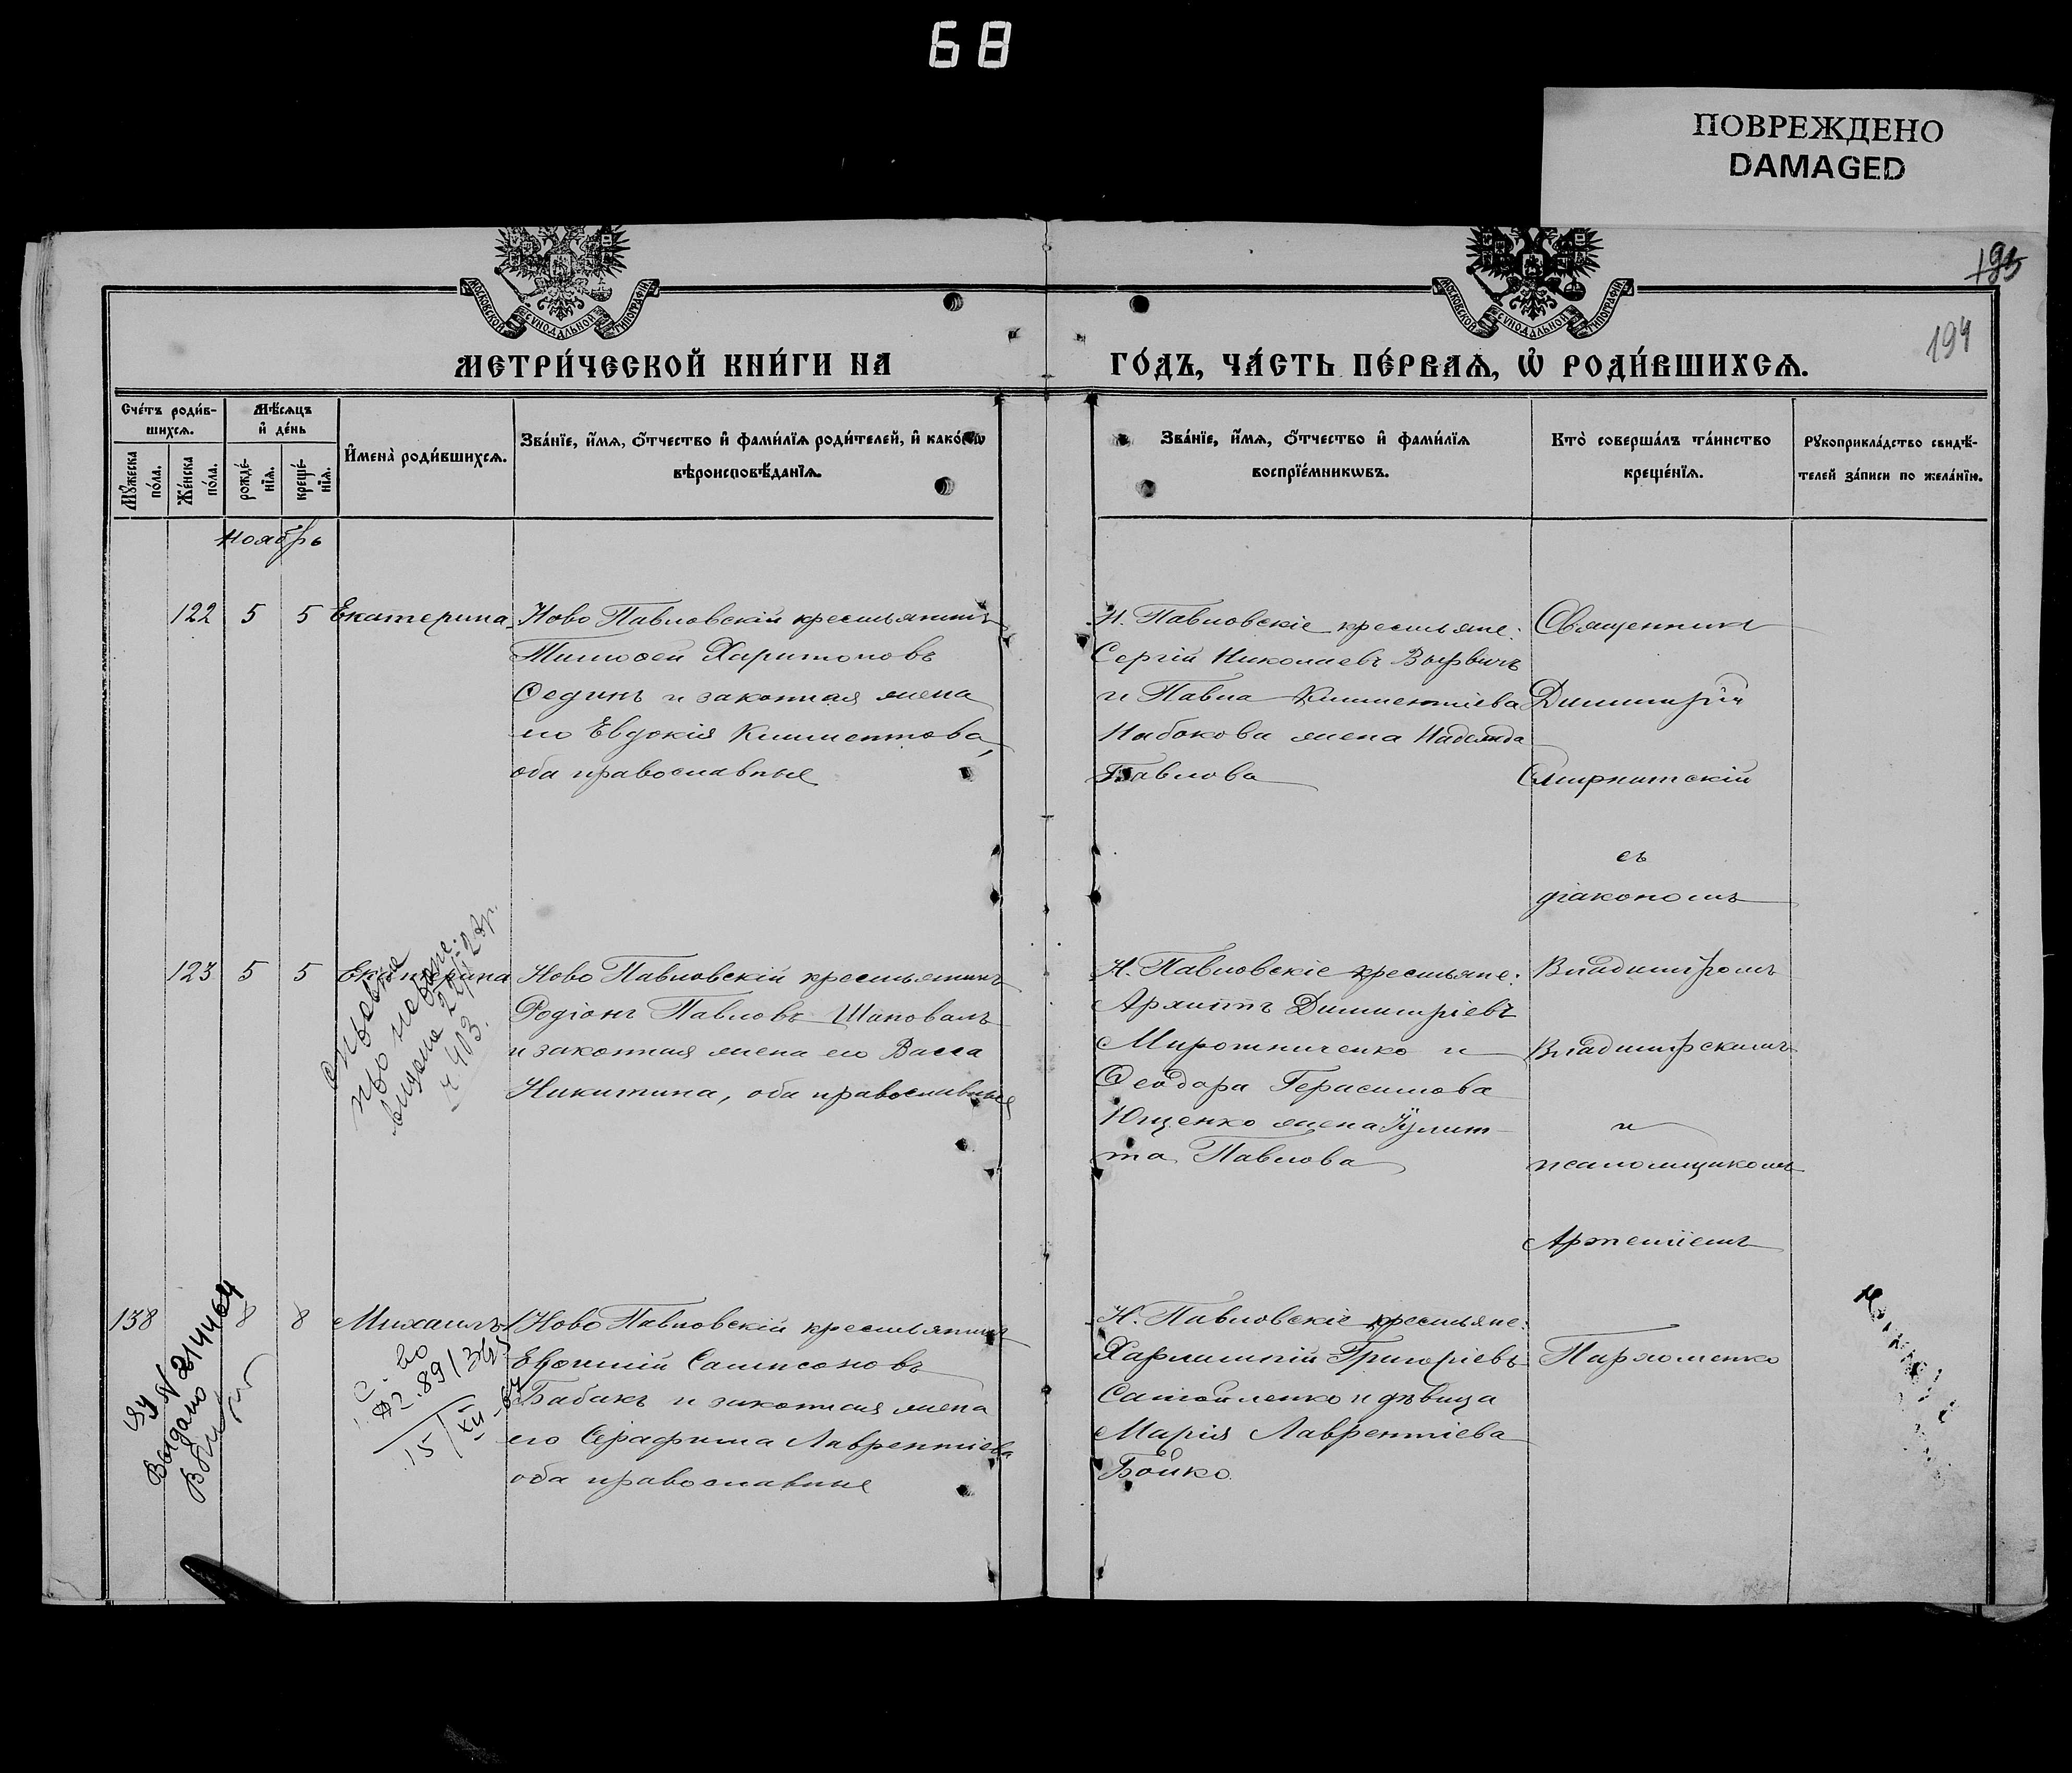 68
ПОВРЕЖДЕНО
DAMAGED
195
194
МОСКОВСКОЙ СѴНОДАЛЬНОЙ ТИПОГРАФІИ
МОСКОВСКОЙ СѴНОДАЛЬНОЙ ТИПОГРАФІИ
МЕТРИ́ЧЕСКОЙ КНИ́ГИ НА
ГО́ДЪ, ЧА́СТЬ ПЕ́РВАѦ, Ѽ РОДИ́ВШИХСѦ.
Сче́тъ роди́в-
шихсѧ.
Мѣ́сѧцъ
и҆ де́нь
Мꙋ́жеска
по́ла.
Же́нска
по́ла.
рожде́-
нїѧ.
креще́-
нїѧ.
И҆мена̀ роди́вшихсѧ.
Зва́нїе, и҆́мѧ, ѻ҆́тчество и҆ фами́лїѧ роди́телей, и҆ како́гѡ
вѣроисповѣ́данїѧ.
Зва́нїе, и҆́мѧ, ѻ҆́тчество и҆ фами́лїѧ
воспрїе́мникѡвъ.
Кто̀ соверша́лъ та́инство
креще́нїѧ.
Рꙋкоприкла́дство свидѣ́-
телей за́писи по жела́нїю.
Ноябрь
122 5 5 Екатерина
Ново Павловскій крестьянинъ
Тимофей Харитоновъ
Фединъ и законная жена
его Евдокія Климентова,
оба православные
Н. Павловскіе крестьяне:
Сергій Николаевъ Вырвичъ
и Павла Климентіева
Набокова жена Надежда
Павлова
Священникъ
Димитрій
Смирнитскій
съ
діакономъ
123 5 5 Екатерина
Ново Павловскій крестьянинъ
Родіонъ Павловъ Шаповалъ
и законная жена его Васса
Никитина, оба православные
Н. Павловскіе крестьяне:
Архиппъ Димитріевъ
Мирошниченко и
Феодора Герасимова
Ющенко жена Іулит-
та Павлова
Владиміромъ
Владимірскимъ
и
псаломщикомъ
Артеміемъ
Пархоменко
138 8 8 Михаилъ
Ново Павловскій крестьянинъ
Евфимій Сампсоновъ
Бабакъ и законная жена
его Серафима Лаврентіева
оба православные
Н. Павловскіе крестьяне:
Харлампій Григоріевъ
Самойленко и дѣвица
Марія Лаврентіева
Бойко.
403.
15/XII